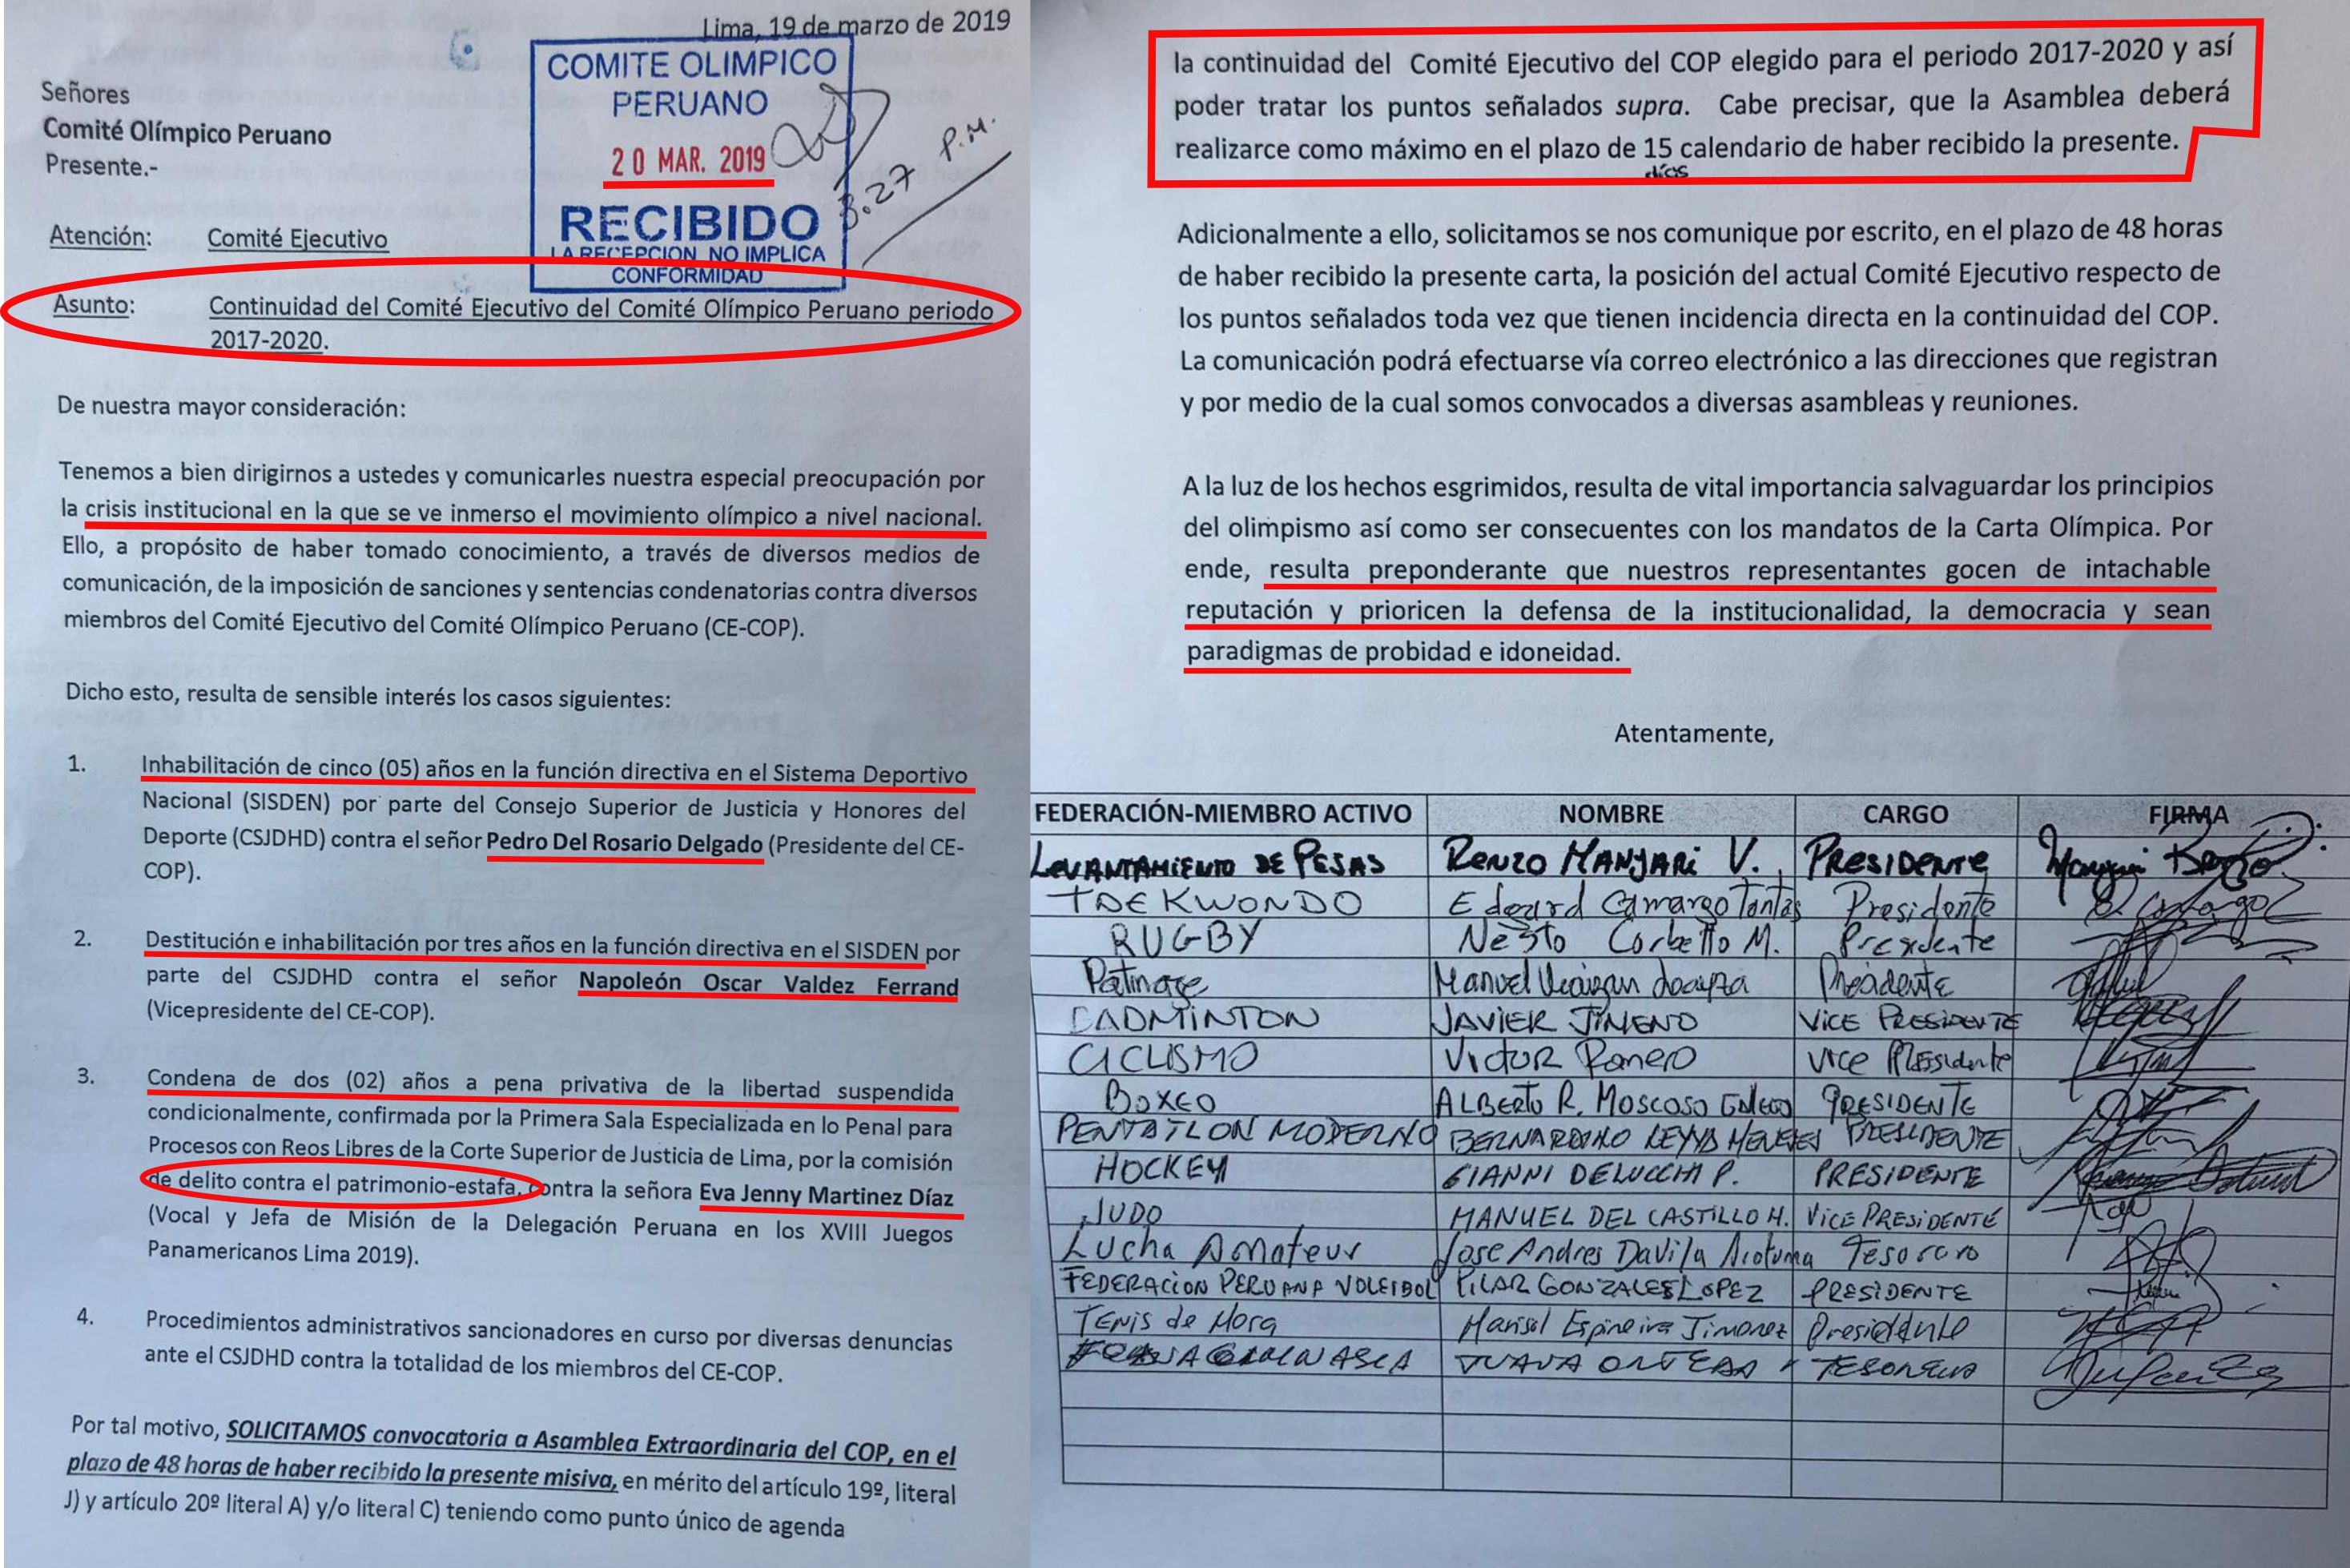 Lima, 19 de marzo de 2019
COMITE OLIMPICO
PERUANO
20 MAR. 2019
3.27 P.M.
RECIBIDO
LA RECEPCION NO IMPLICA
CONFORMIDAD
Señores
Comité Olímpico Peruano
Presente.-
Atención: Comité Ejecutivo
Asunto: Continuidad del Comité Ejecutivo del Comité Olímpico Peruano periodo
2017-2020.
De nuestra mayor consideración:
Tenemos a bien dirigirnos a ustedes y comunicarles nuestra especial preocupación por
la crisis institucional en la que se ve inmerso el movimiento olímpico a nivel nacional.
Ello, a propósito de haber tomado conocimiento, a través de diversos medios de
comunicación, de la imposición de sanciones y sentencias condenatorias contra diversos
miembros del Comité Ejecutivo del Comité Olímpico Peruano (CE-COP).
Dicho esto, resulta de sensible interés los casos siguientes:
1. Inhabilitación de cinco (05) años en la función directiva en el Sistema Deportivo
Nacional (SISDEN) por parte del Consejo Superior de Justicia y Honores del
Deporte (CSJDHD) contra el señor Pedro Del Rosario Delgado (Presidente del CE-
COP).
2. Destitución e inhabilitación por tres años en la función directiva en el SISDEN por
parte del CSJDHD contra el señor Napoleón Oscar Valdez Ferrand
(Vicepresidente del CE-COP).
3. Condena de dos (02) años a pena privativa de la libertad suspendida
condicionalmente, confirmada por la Primera Sala Especializada en lo Penal para
Procesos con Reos Libres de la Corte Superior de Justicia de Lima, por la comisión
de delito contra el patrimonio-estafa, contra la señora Eva Jenny Martinez Díaz
(Vocal y Jefa de Misión de la Delegación Peruana en los XVIII Juegos
Panamericanos Lima 2019).
4. Procedimientos administrativos sancionadores en curso por diversas denuncias
ante el CSJDHD contra la totalidad de los miembros del CE-COP.
Por tal motivo, SOLICITAMOS convocatoria a Asamblea Extraordinaria del COP, en el
plazo de 48 horas de haber recibido la presente misiva, en mérito del artículo 19º, literal
J) y artículo 20º literal A) y/o literal C) teniendo como punto único de agenda
la continuidad del Comité Ejecutivo del COP elegido para el periodo 2017-2020 y así
poder tratar los puntos señalados supra. Cabe precisar, que la Asamblea deberá
realizarce como máximo en el plazo de 15 calendario de haber recibido la presente.
días
Adicionalmente a ello, solicitamos se nos comunique por escrito, en el plazo de 48 horas
de haber recibido la presente carta, la posición del actual Comité Ejecutivo respecto de
los puntos señalados toda vez que tienen incidencia directa en la continuidad del COP.
La comunicación podrá efectuarse vía correo electrónico a las direcciones que registran
y por medio de la cual somos convocados a diversas asambleas y reuniones.
A la luz de los hechos esgrimidos, resulta de vital importancia salvaguardar los principios
del olimpismo así como ser consecuentes con los mandatos de la Carta Olímpica. Por
ende, resulta preponderante que nuestros representantes gocen de intachable
reputación y prioricen la defensa de la institucionalidad, la democracia y sean
paradigmas de probidad e idoneidad.
Atentamente,
FEDERACIÓN-MIEMBRO ACTIVO NOMBRE CARGO FIRMA
LEVANTAMIENTO DE PESAS RENZO MANYARI V. PRESIDENTE
TAEKWONDO Edouard Camargo Presidente
RUGBY Nèsto Corbetto M. Presidente
Patinaje Manuel Presidente
BADMINTON JAVIER JIMENO VICE PRESIDENTE
CICLISMO VICTOR Romero Vice Presidente
BOXEO ALBERTO R. MOSCOSO PRESIDENTE
PENTATLON MODERNO BERNARDINO PRESIDENTE
HOCKEY GIANNI DELUCCHI P. PRESIDENTE
JUDO MANUEL DEL CASTILLO H. VICE PRESIDENTE
Lucha Amateur Jose Andres Davila Tesorero
FEDERACION PERUANA VOLEIBOL PILAR GONZALES LOPEZ PRESIDENTE
TENIS de Mesa Marisol Espineira Jimenez Presidente
JUANA TESORERA